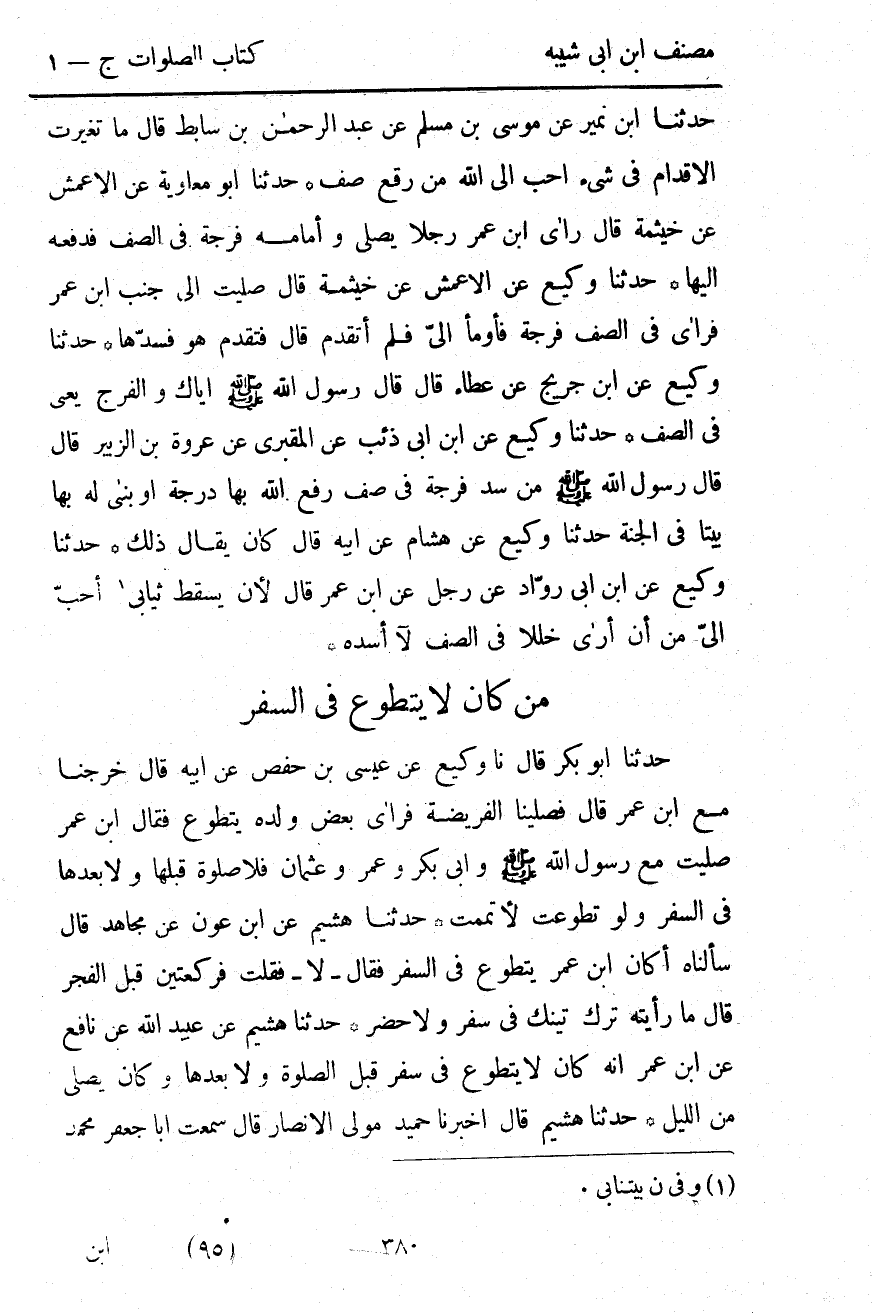 مصنف ابن ابى شيبه
كتاب الصلوات ج — ١
حدثنا ابن نمير عن موسى بن مسلم عن عبد الرحمٰن بن سابط قال ما تغيرت
الاقدام فى شىء احب الى الله من رقع صف * حدثنا ابو معاوية عن الاعمش
عن خيثمة قال رأى ابن عمر رجلا يصلى و أمامه فرجة فى الصف فدفعه
اليها * حدثنا وكيع عن الاعمش عن خيثمة قال صليت الى جنب ابن عمر
فرأى فى الصف فرجة فأومأ الىّ فلم أتقدم قال فتقدم هو فسدّها * حدثنا
وكيع عن ابن جريج عن عطاء قال قال رسول الله ﷺ اياك و الفرج يعنى
فى الصف * حدثنا وكيع عن ابن ابى ذئب عن المقبرى عن عروة بن الزبير قال
قال رسول الله ﷺ من سد فرجة فى صف رفع الله بها درجة او بنىٰ له بها
بيتا فى الجنة حدثنا وكيع عن هشام عن ابيه قال كان يقال ذلك * حدثنا
وكيع عن ابن ابى روّاد عن رجل عن ابن عمر قال لأن يسقط ثيابى ١ أحبّ
الىّ من أن أرىٰ خللا فى الصف لآ أسده *
من كان لا يتطوع فى السفر
حدثنا ابو بكر قال نا وكيع عن عيسى بن حفص عن ابيه قال خرجنا
مع ابن عمر قال فصلينا الفريضة فرأى بعض ولده يتطوع فقال ابن عمر
صليت مع رسول الله ﷺ و ابى بكر و عمر و عثمان فلاصلوة قبلها و لابعدها
فى السفر و لو تطوعت لأتممت * حدثنا هشيم عن ابن عون عن مجاهد قال
سألناه أكان ابن عمر يتطوع فى السفر فقال ـ لا ـ فقلت فركعتين قبل الفجر
قال ما رأيته ترك تينك فى سفر و لاحضر * حدثنا هشيم عن عبيد الله عن نافع
عن ابن عمر انه كان لايتطوع فى سفر قبل الصلوة و لا بعدها و كان يصلى
من الليل * حدثنا هشيم قال اخبرنا حميد مولى الانصار قال سمعت ابا جعفر محمد
(١) و فى ن بيتنابى .
٣٨٠
(٩٥)
ابن